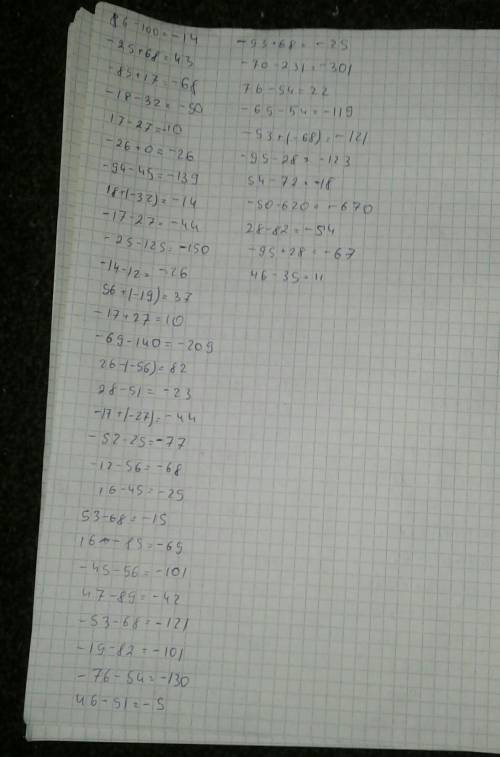 86-100=-14
-25+68=43
-85+17=-68
-18-32=-50
17-27=-10
-26+0=-26
-94-45=-139
18+(-32)=-14
-17-27=-44
-25-125=-150
-14-12=-26
56+(-19)=37
-17+27=10
-69-140=-209
26-(-56)=82
28-51=-23
-17+(-27)=-44
-52-25=-77
-12-56=-68
16-45=-25
53-68=-15
16-85=-69
-45-56=-101
47-89=-42
-53-68=-121
-19-82=-101
-76-54=-130
46-51=-5
-93+68=-25
-70-231=-301
76-54=22
-65-54=-119
-53+(-68)=-121
-95-28=-123
54-72=-18
-50-620=-670
28-82=-54
-95+28=-67
46-35=11